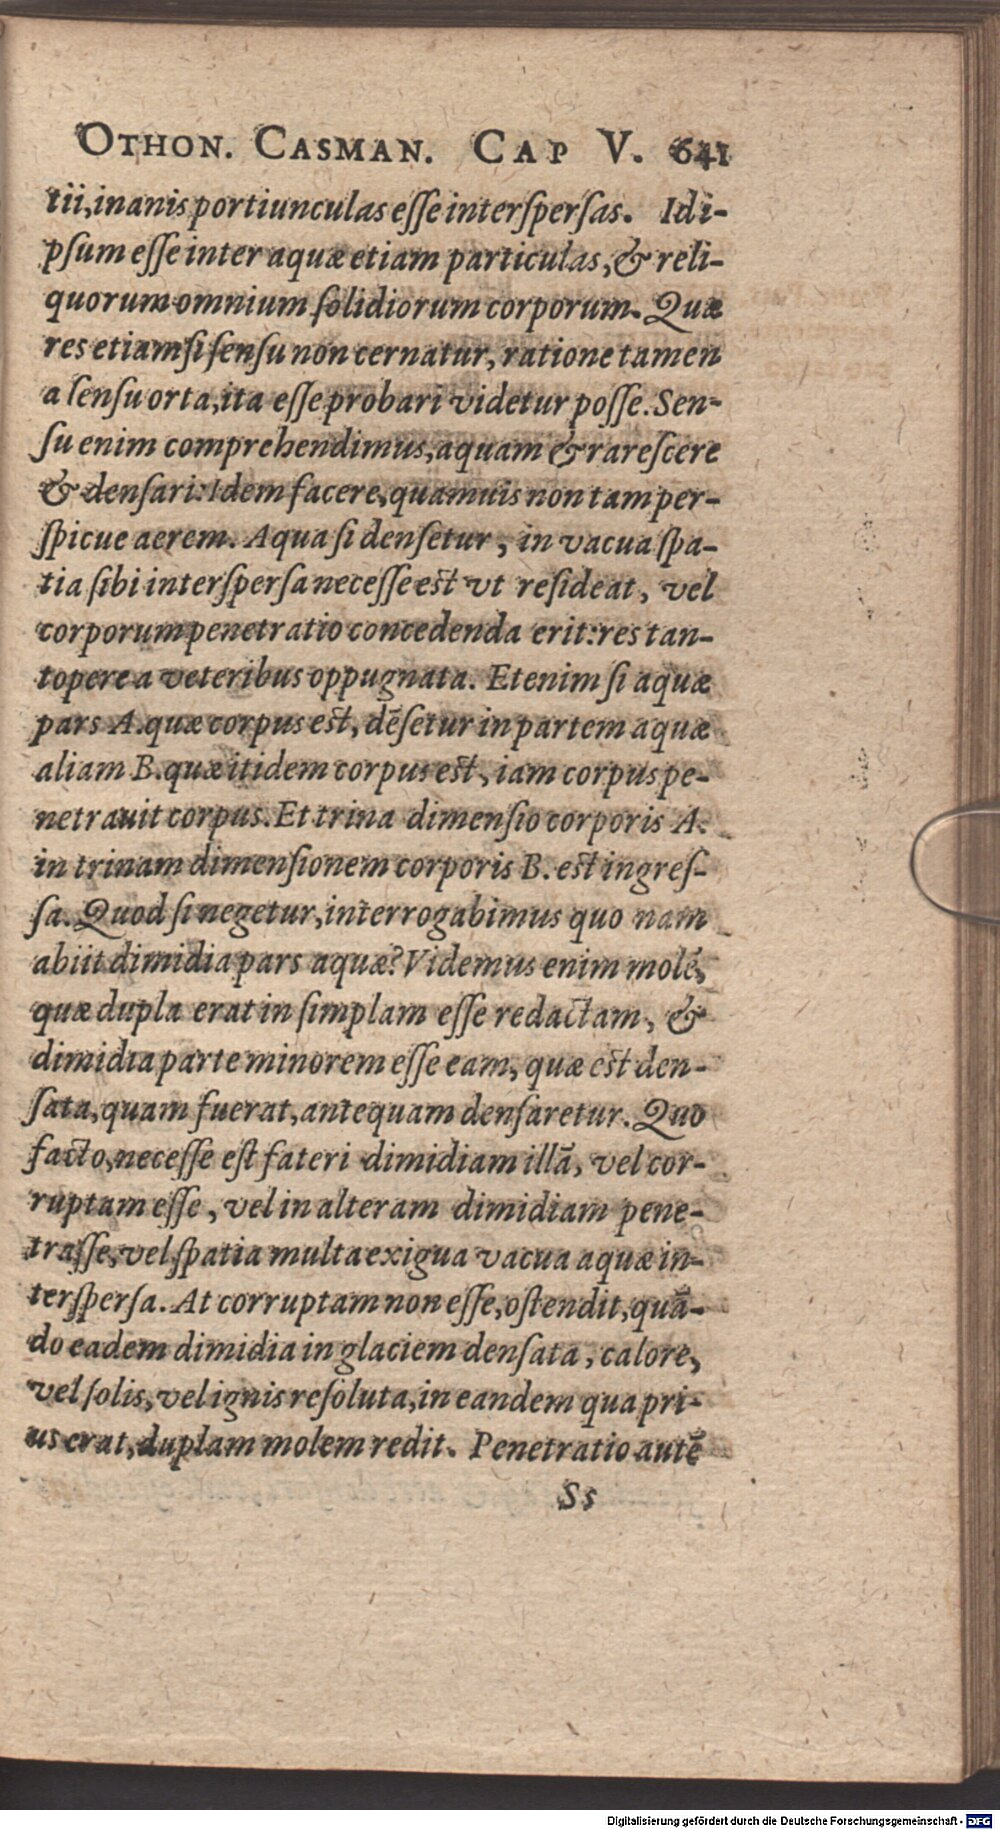 OTHON. CASMAN. CAP V. 641
tii, inanis portiunculas esse interspersas. Idi-
psum esse inter aquæ etiam particulas, & reli-
quorum omnium solidiorum corporum. Quæ
res etiamsi sensu non cernatur, ratione tamen
a sensu orta, ita esse probari videtur posse. Sen-
su enim comprehendimus, aquam & rarescere
& densari: Idem facere, quamuis non tam per-
spicue aerem. Aqua si densetur, in vacua spa-
tia sibi interspersa necesse est vt resideat, vel
corporum penetratio concedenda erit: res tan-
topere a veteribus oppugnata. Etenim si aquæ
pars A. quæ corpus est, dēsetur in partem aquæ
aliam B. quæ itidem corpus est, iam corpus pe-
netrauit corpus. Et trina dimensio corporis A.
in trinam dimensionem corporis B. est ingres-
sa. Quod si negetur, interrogabimus quo nam
abiit dimidia pars aquæ? Videmus enim molē,
quæ dupla erat in simplam esse redactam, &
dimidia parte minorem esse eam, quæ est den-
sata, quam fuerat, antequam densaretur. Quo
facto, necesse est fateri dimidiam illā, vel cor-
ruptam esse, vel in alteram dimidiam pene-
trasse, vel spatia multa exigua vacua aquæ in-
terspersa. At corruptam non esse, ostendit, quā-
do eadem dimidia in glaciem densata, calore,
vel solis, vel ignis resoluta, in eandem qua pri-
us erat, duplam molem redit. Penetratio autē
Ss
Digitalisierung gefördert durch die Deutsche Forschungsgemeinschaft - DFG